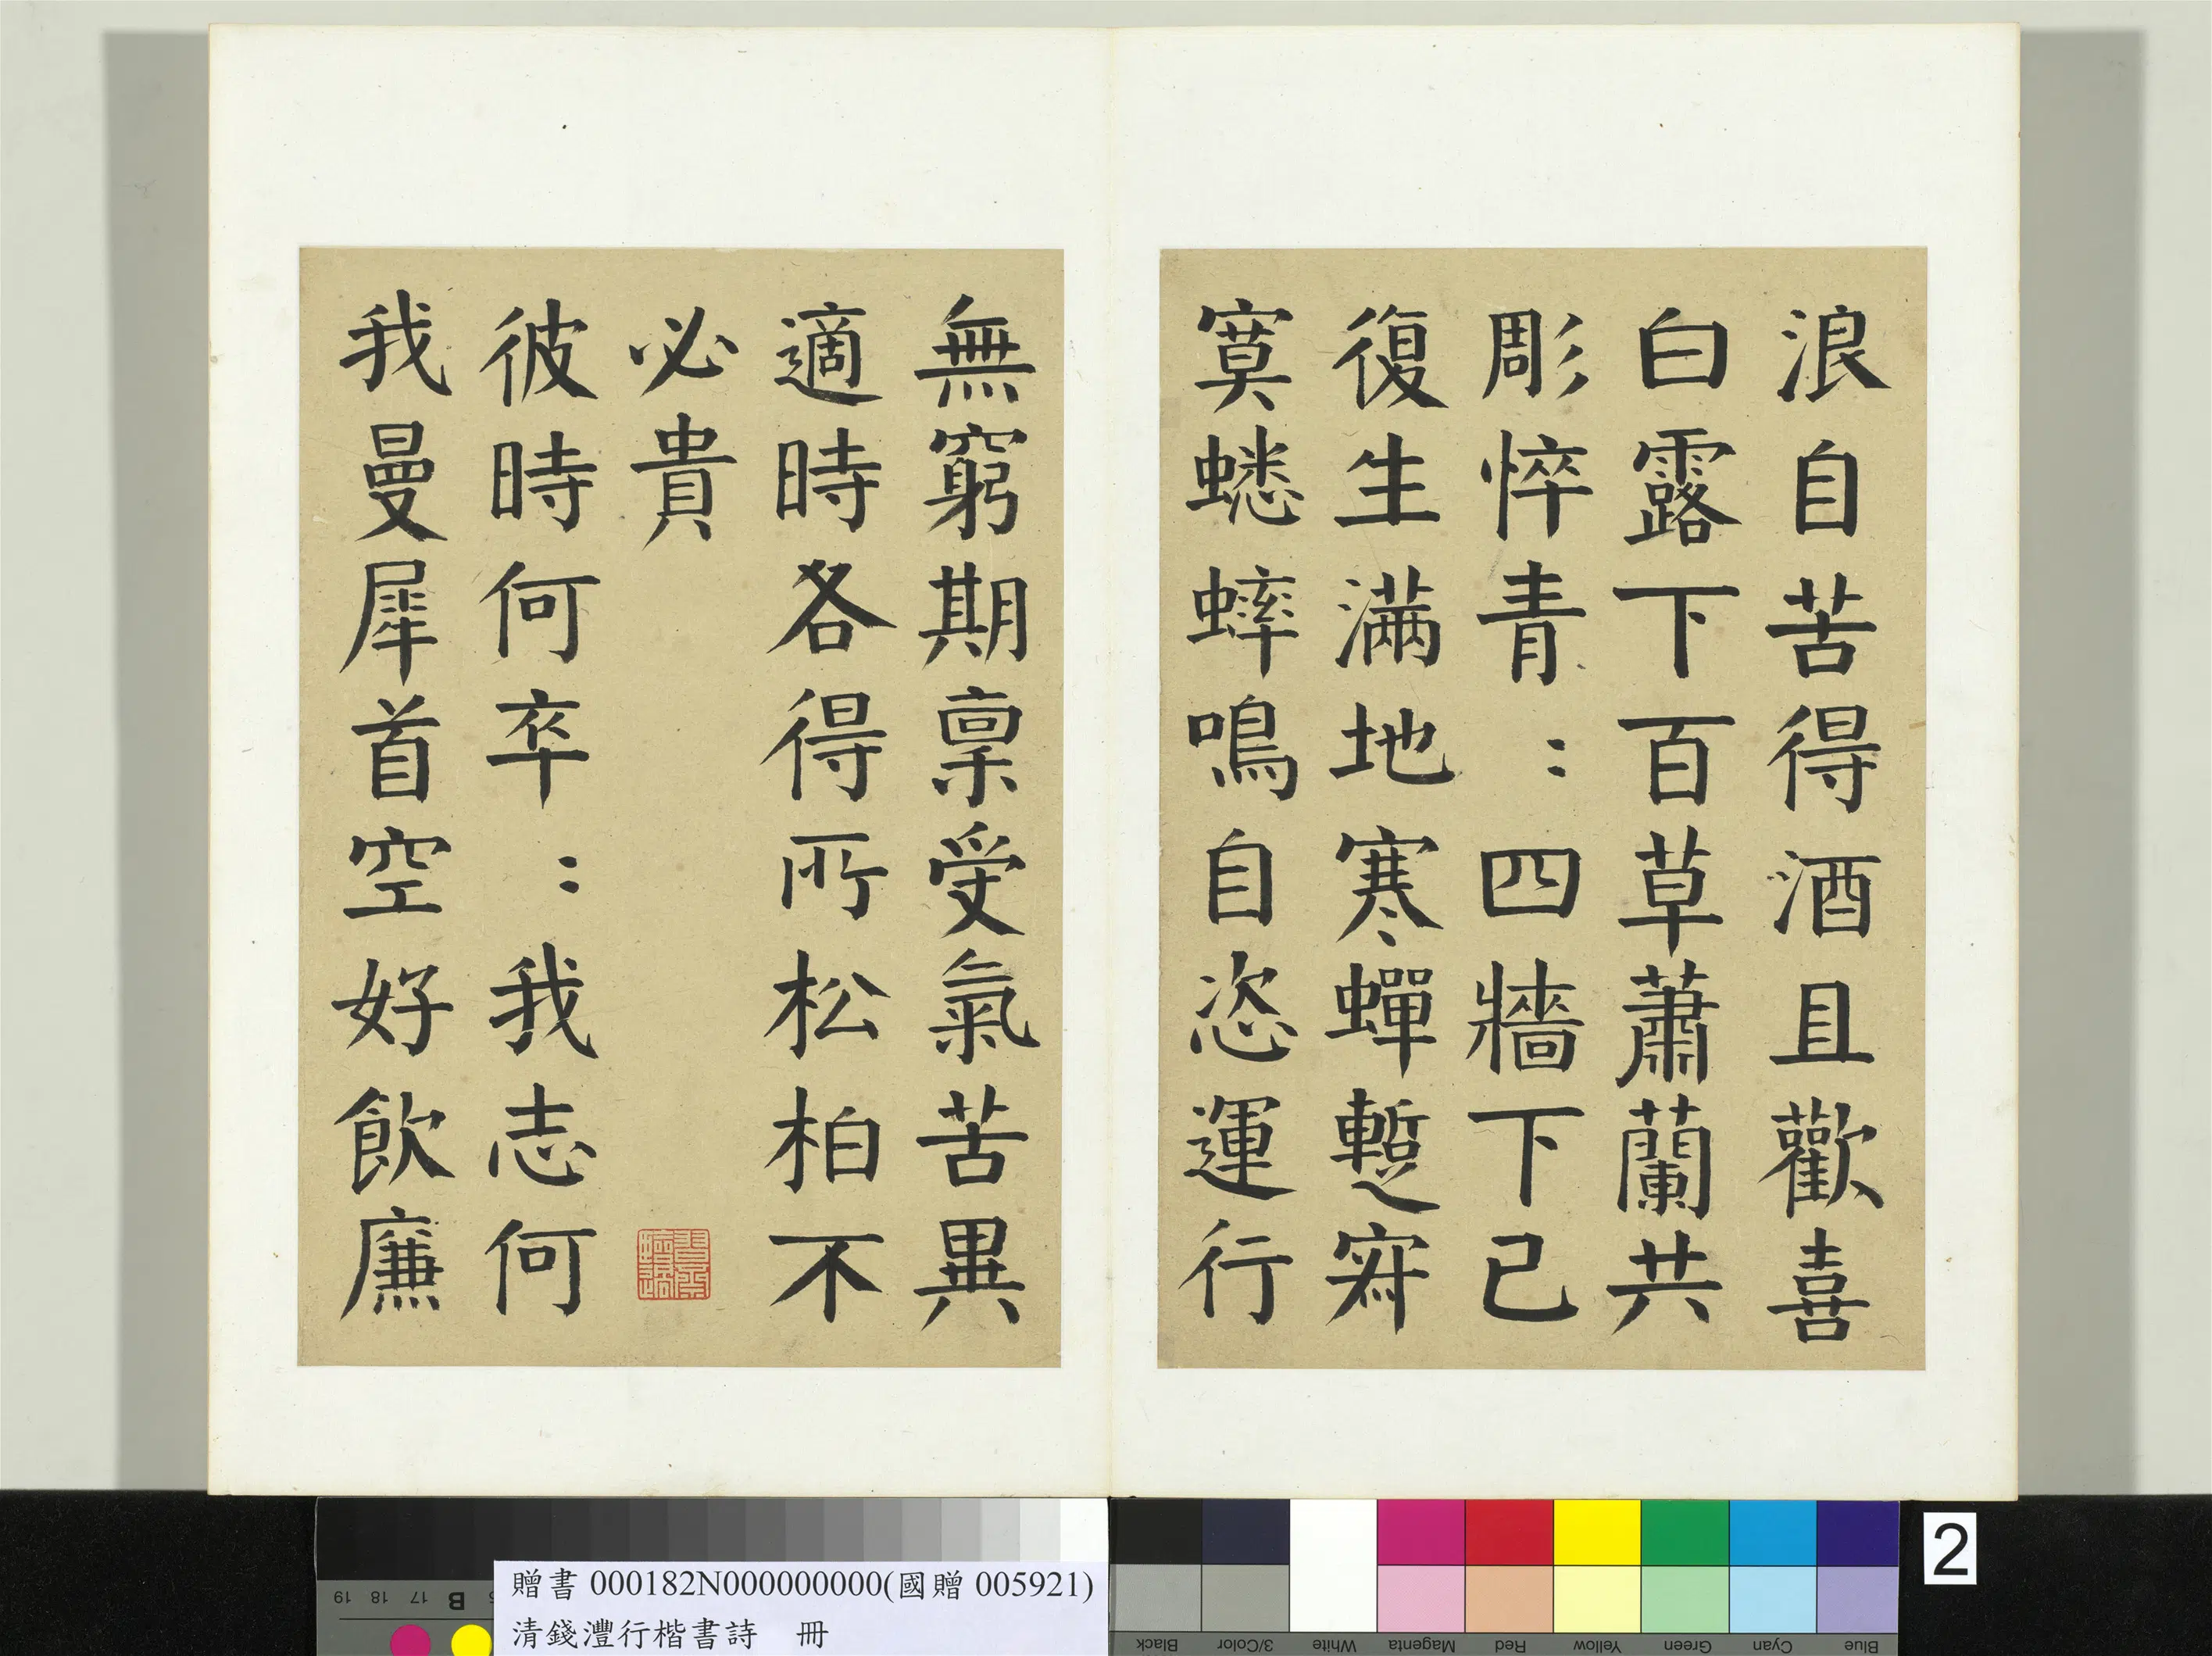 浪自苦得酒且歡喜
白露下百草蕭蘭共
彫悴青〻四牆下已
復生滿地寒蟬蹔寂
寞蟋蟀鳴自恣運行
無窮期稟受氣苦異
適時各得所松柏不
必貴
彼時何卒〻我志何
我曼犀首空好飲廉
贈書 000182N000000000(國贈 005921)
清錢灃行楷書詩 冊
2
B 17 18 19
Blue Cyan Green Yellow Red Magenta White 3/Color Black